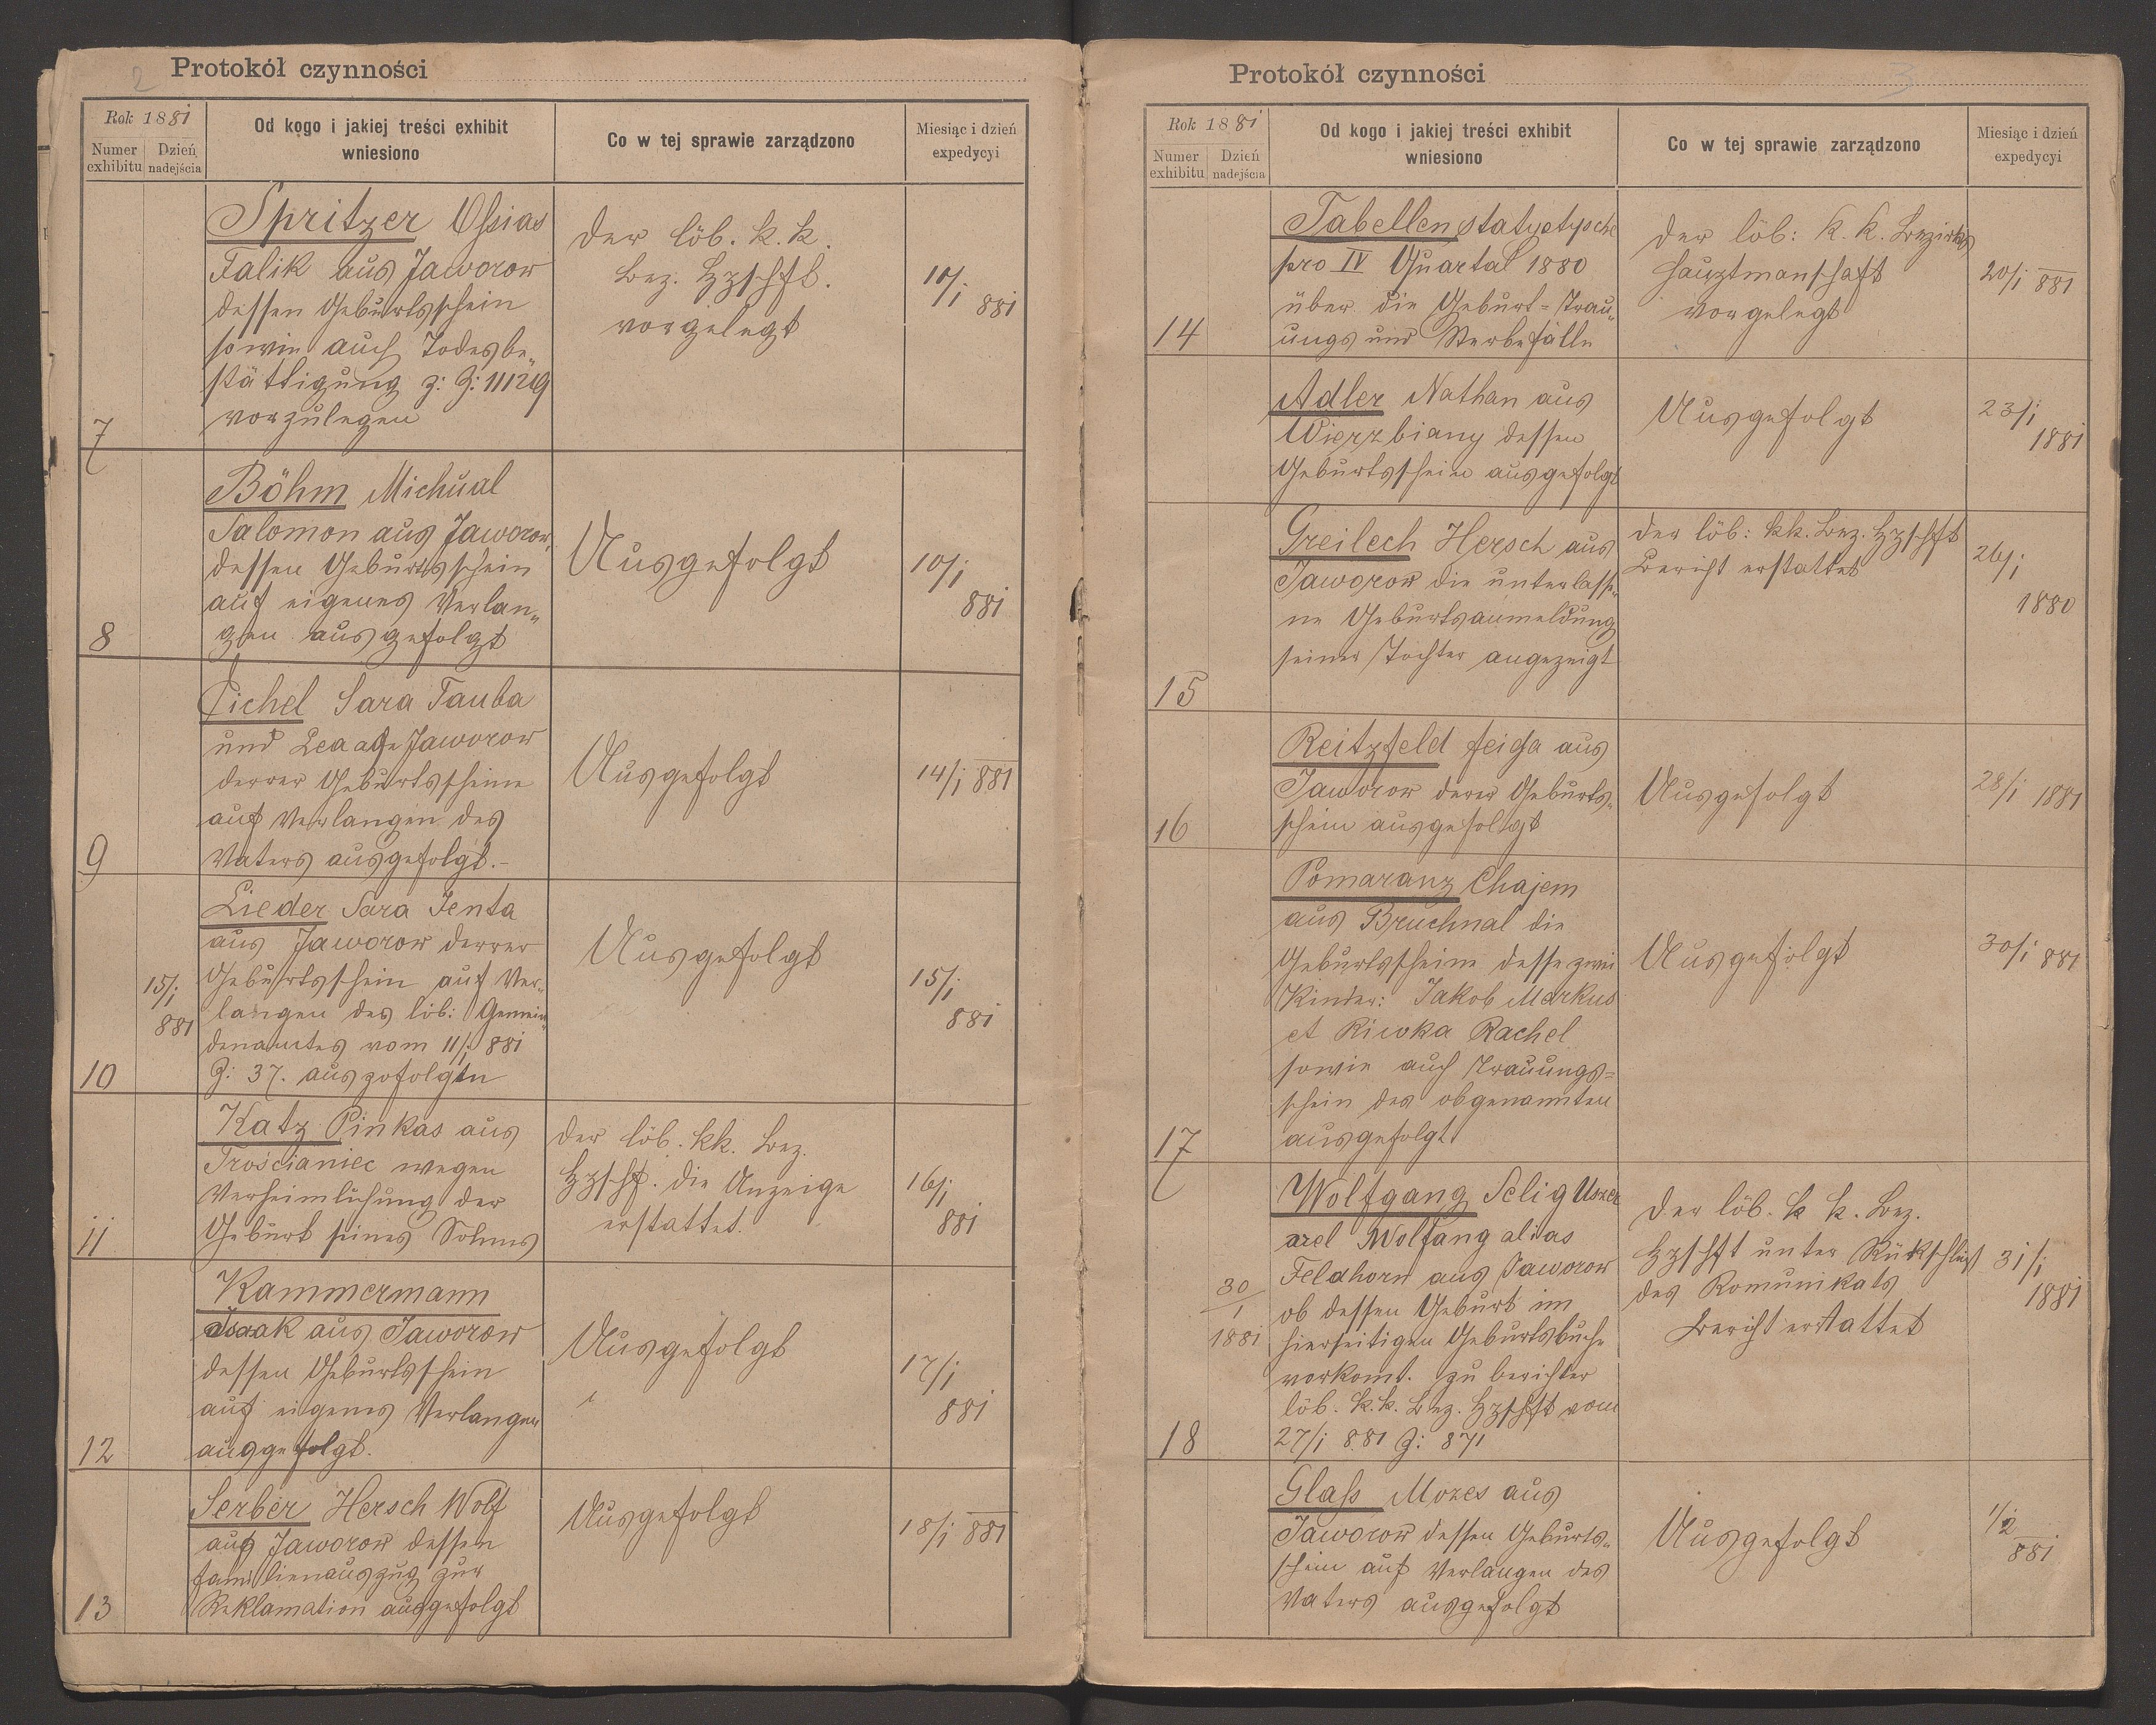 2
Protokół czynności
Rok 1881
Numer exhibitu
Dzień nadejścia
Od kogo i jakiej treści exhibit
wniesiono
Co w tej sprawie zarządzono
Miesiąc i dzień
expedycyi
7
Spritzer Ossias
Falik aus Jaworow
dessen Geburtsschein
sowie auch Todesbe„
stättigung z: Z: 11129
vorzulegen
Der löb. k. k.
Bez. Hptschft.
vorgelegt
10/1 881
8
Böhm Michual
Salomon aus Jaworow,
dessen Geburtsschein
auf eigenes Verlan„
gen ausgefolgt
Ausgefolgt
10/1
881
9
Eichel Sara Tauba
und Lea aus Jaworow
derrer Geburtsscheine
auf Verlangen des
Vaters ausgefolgt.-
Ausgefolgt
14/1 881
10
15/1
881
Lieder Sara Jenta
aus Jaworow derrer
Geburtsschein auf Ver„
langen des löb: Gemein„
denamtes vom 11/1 881
Z: 37. auszofolgen
Ausgefolgt
15/1
881
11
Katz Pinkas aus
Trościaniec wegen
Verheimlichung der
Geburt seines Sohnes
Der löb. kk. Bez.
Hptschft. die Anzeige
erstattet.
16/1
881
12
Kammermann
Isaak aus Jaworow
dessen Geburtsschein
auf eigenes Verlangen
ausgefolgt.
Ausgefolgt
17/1
881
13
Serber Hersch Wolf
aus Jaworow dessen
familienauszug zur
Reklamation ausgefolgt
Ausgefolgt
18/1 881
3
Protokół czynności
Rok 1881
Numer exhibitu
Dzień nadejścia
Od kogo i jakiej treści exhibit
wniesiono
Co w tej sprawie zarządzono
Miesiąc i dzień
expedycyi
14
Tabellen statystysche
pro IV Quartal 1880
über die Geburt=Trau„
ungs und Sterbefälle
Der löb: k. k. Bezirks
hauptmanschaft
vorgelegt
20/1 881
Adler Nathan aus
Wierzbiany dessen
Geburtsschein ausgefolgt
Ausgefolgt
23/1
1881
15
Greilech Hersch aus
Jaworow die unterlasse„
ne Geburtsanmeldung
seiner Tochter angezeigt
Der löb: kk. Bez. Hptschft
Bericht erstattet
26/1
1880
16
Reitzfeld feiga aus
Jaworow derer Geburts„
schein ausgefolgt
Ausgefolgt
28/1 1881
17
Pomaranz Chajem
aus Bruchnal die
Geburtsscheine desse zwei
Kinder: Jakob Markus
et Riwka Rachel
sowie auch Trauungs=
schein des obgenannten
ausgefolgt
Ausgefolgt
30/1 881
18
30/1
1881
Wolfgang Selig Uszer
arel Wolfang alias
Feldhorn aus Jaworow
ob dessen Geburt im
hierseitigen Geburtsbuche
vorkomt. zu berichter
löb. k.k. Bez. Hptschft vom
27/1 881 Z: 871
Der löb. k k. Bez.
Hptschft unter Rükschluß
des Komunikats
Bericht erstattet
31/1
1881
Glass Mozes aus
Jaworow dessen Geburts„
schein auf Verlangen des
Vaters ausgefolgt
Ausgefolgt
1/2
881